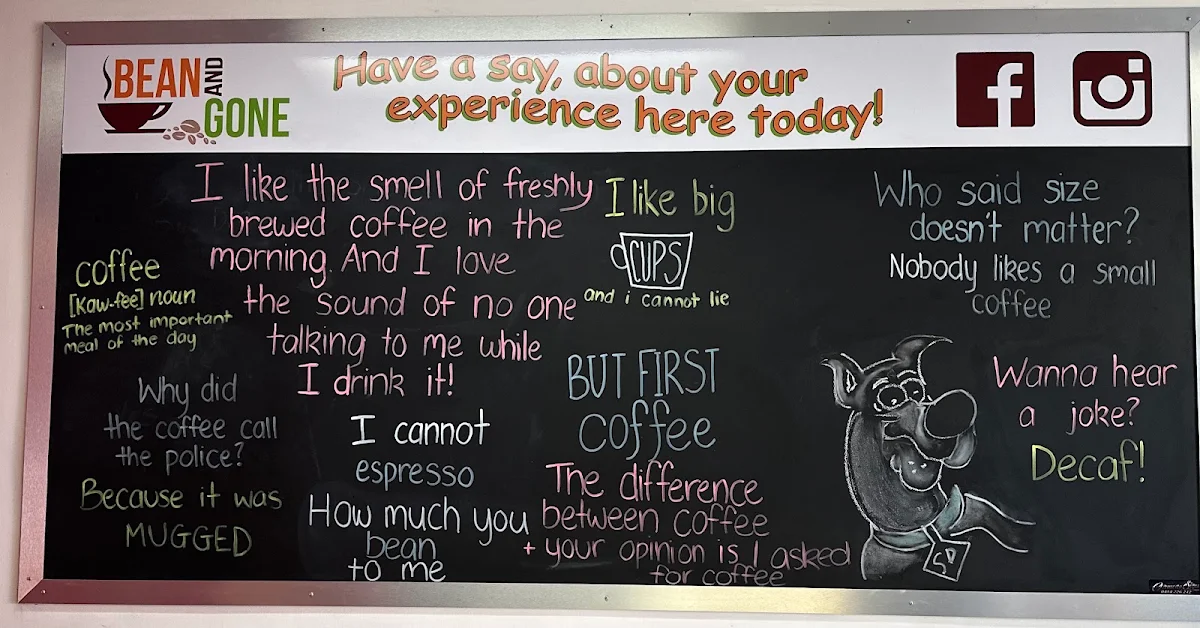 BEAN AND
GONE
Have a say, about your
experience here today!
I like the smell of freshly
brewed coffee in the
morning. And I love
the sound of no one
talking to me while
I drink it!
coffee
[kaw-fee] noun
The most important
meal of the day
Why did
the coffee call
the police?
Because it was
MUGGED
I cannot
espresso
How much you
bean
to me
I like big
CUPS
and i cannot lie
BUT FIRST
coffee
The difference
between coffee
+ your opinion is I asked
for coffee
Who said size
doesn't matter?
Nobody likes a small
coffee
Wanna hear
a joke?
Decaf!
SD